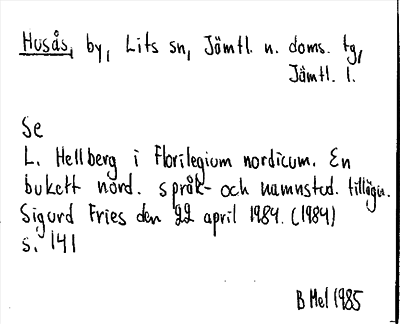 Husås, by, Lits sn, Jämtl. n. doms. tg,
Jämtl. l.
Se
L. Hellberg i Florilegium nordicum. En
bukett nord. språk- och namnstud. tillägn.
Sigurd Fries den 22 april 1984. (1984)
s. 141
B Mel 1985